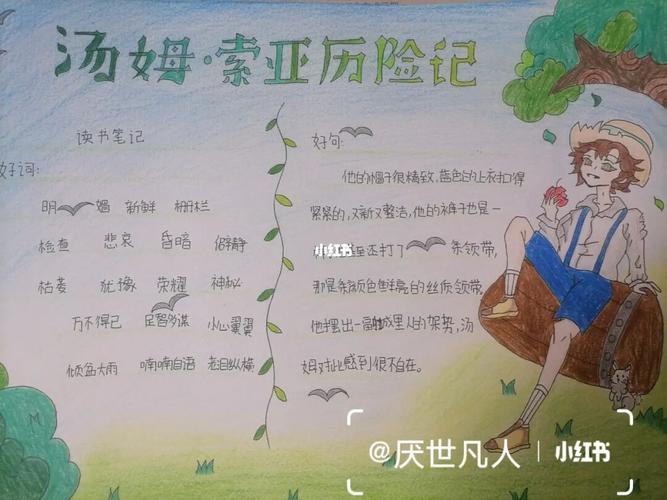 汤姆·索亚历险记
读书笔记
好词:
明媚 新鲜 栅栏
检查 悲哀 昏暗 僻静
枯萎 犹豫 荣耀 神秘
万不得已 足智多谋 小心翼翼
倾盆大雨 喃喃自语 老泪纵横
好句:
他的帽子很精致,蓝色的上衣扣得
紧紧的,又新又整洁,他的裤子也是一
还打了 条领带,
那是条颜色鲜亮的丝质领带,
他摆出一副城里人的架势,汤
姆对此感到很不自在。
小红书
@厌世凡人 | 小红书